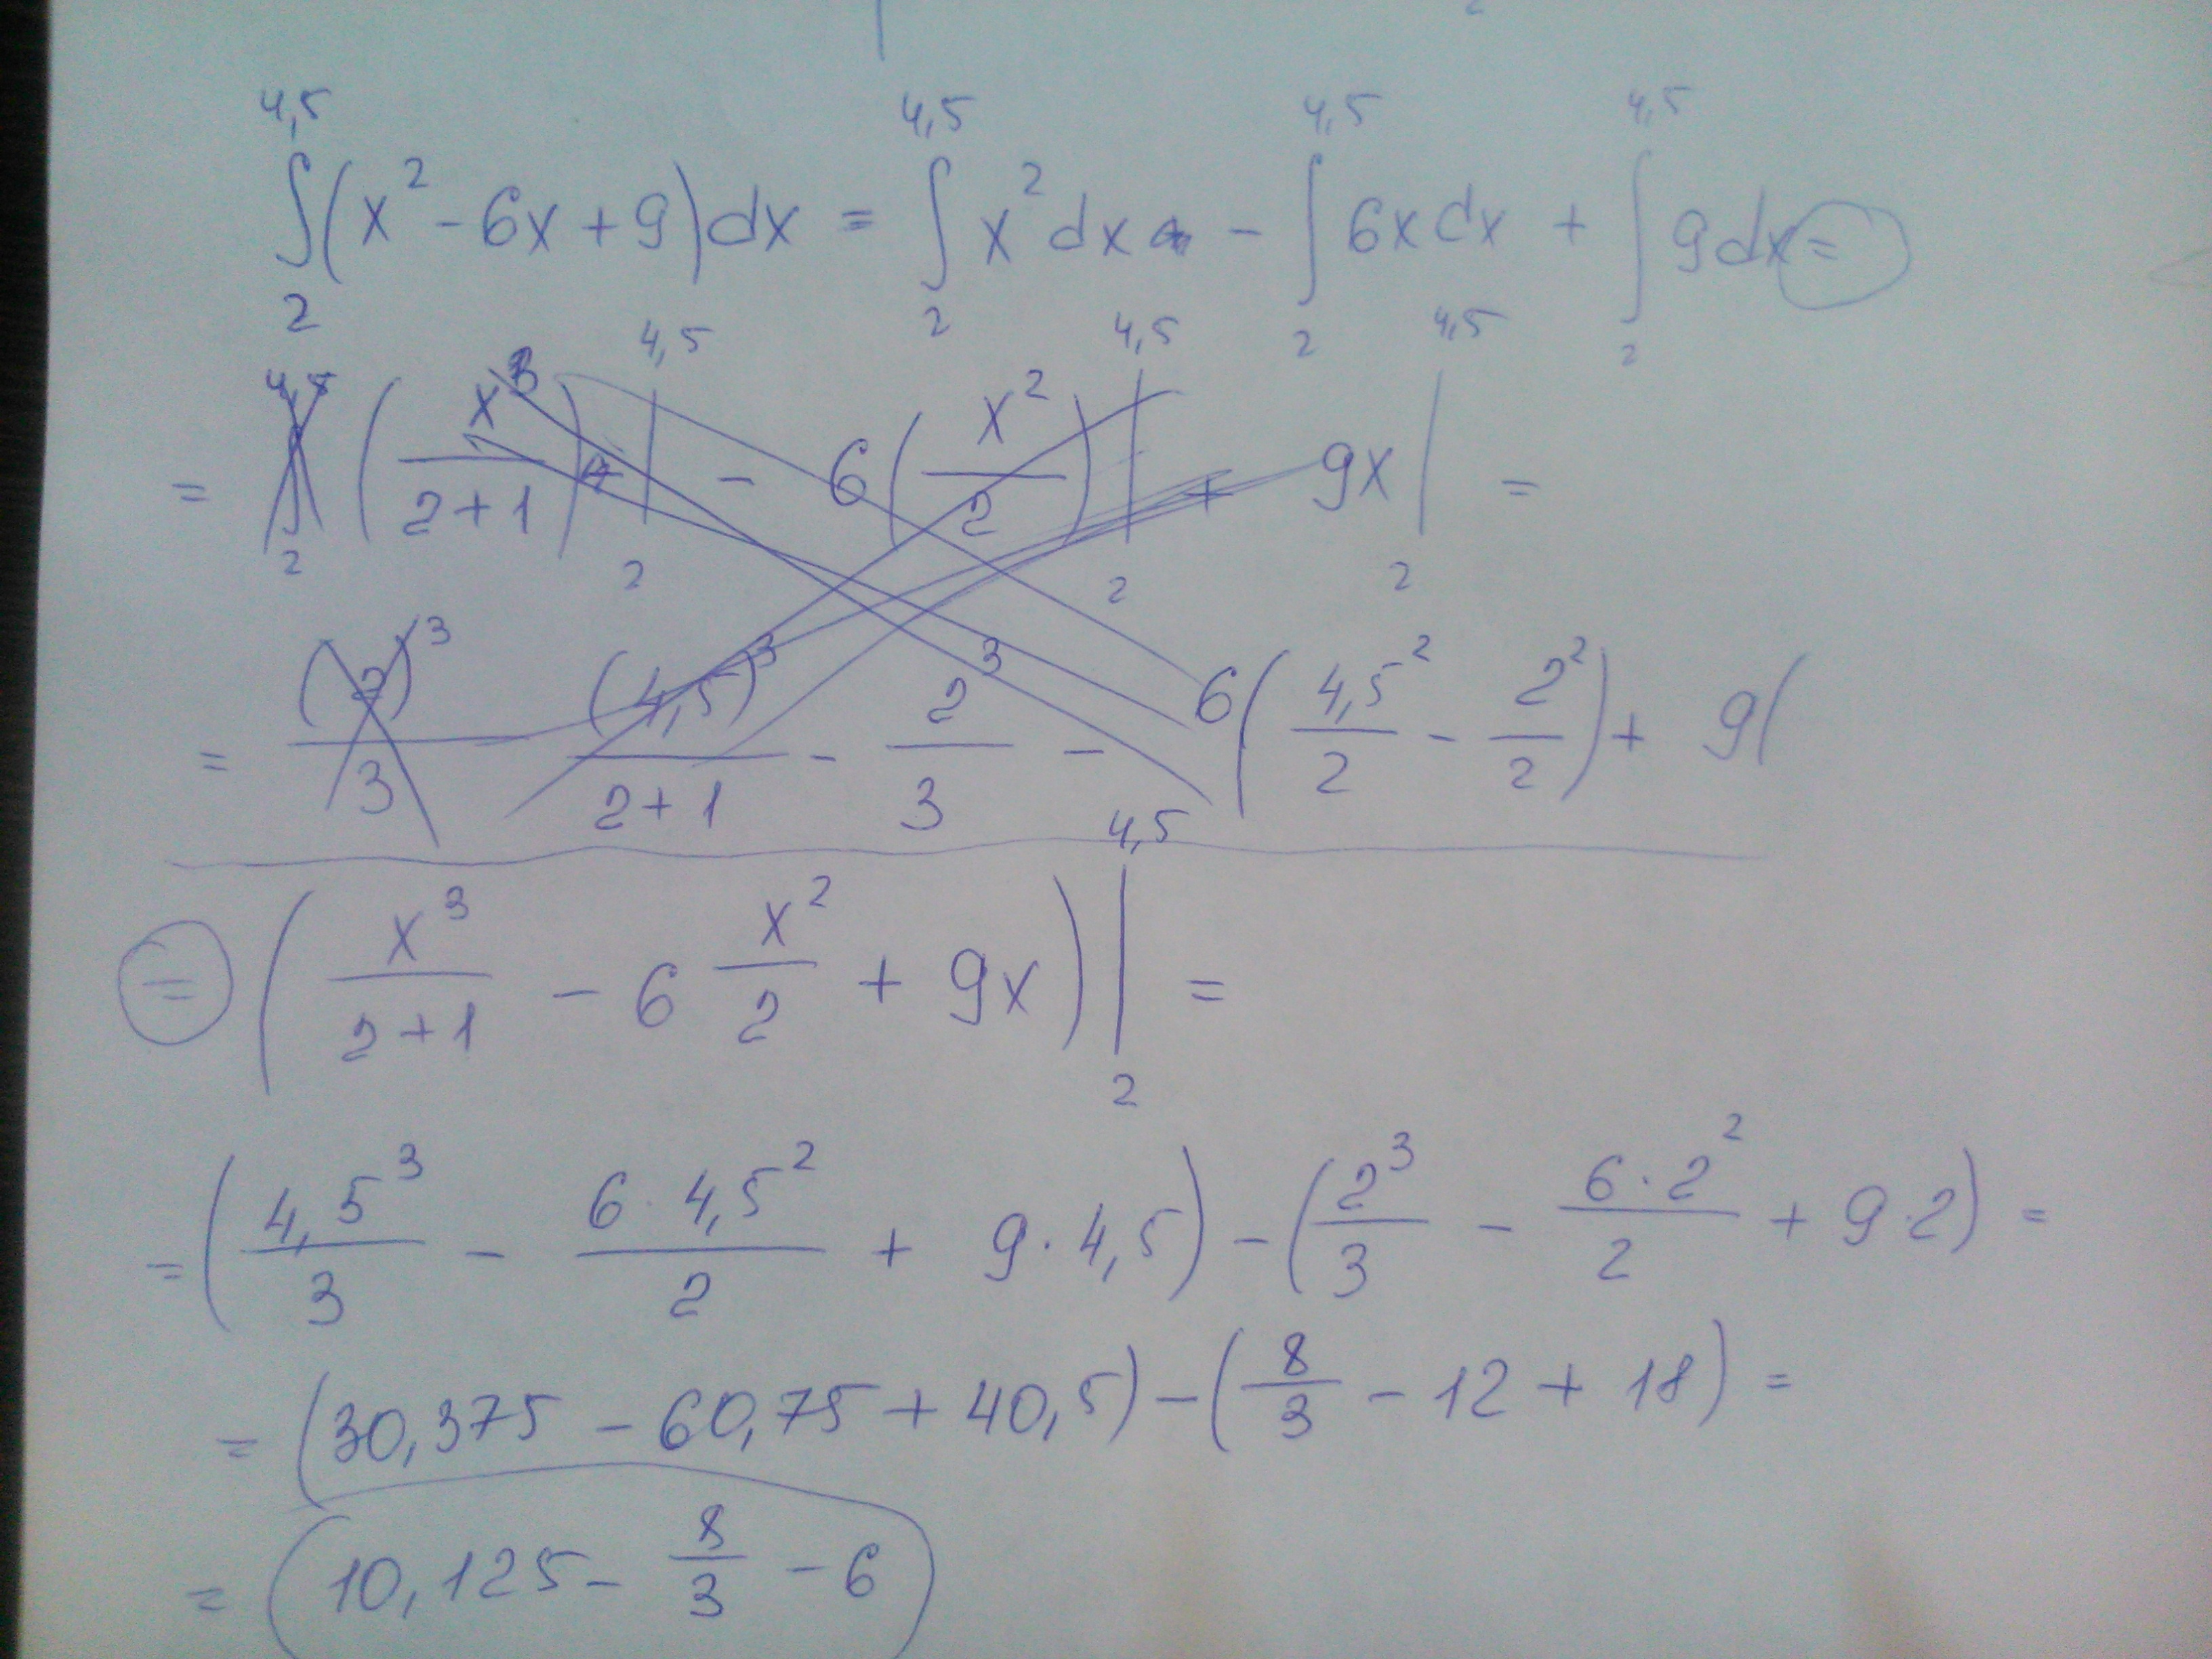 ∫₂^4,5 (x² - 6x + 9) dx = ∫₂^4,5 x² dx - ∫₂^4,5 6x dx + ∫₂^4,5 9 dx =
= ∫₂^4,5 (x³/(2+1)) |₂^4,5 - 6 (x²/2) |₂^4,5 + 9x |₂^4,5 =
= (2)³/3 (4,5)³/(2+1) - 2³/3 - 6 (4,5²/2 - 2²/2) + 9 (
= (x³/(2+1) - 6 x²/2 + 9x) |₂^4,5 =
= (4,5³/3 - 6·4,5²/2 + 9·4,5) - (2³/3 - 6·2²/2 + 9·2) =
= (30,375 - 60,75 + 40,5) - (8/3 - 12 + 18) =
= (10,125 - 8/3 - 6)